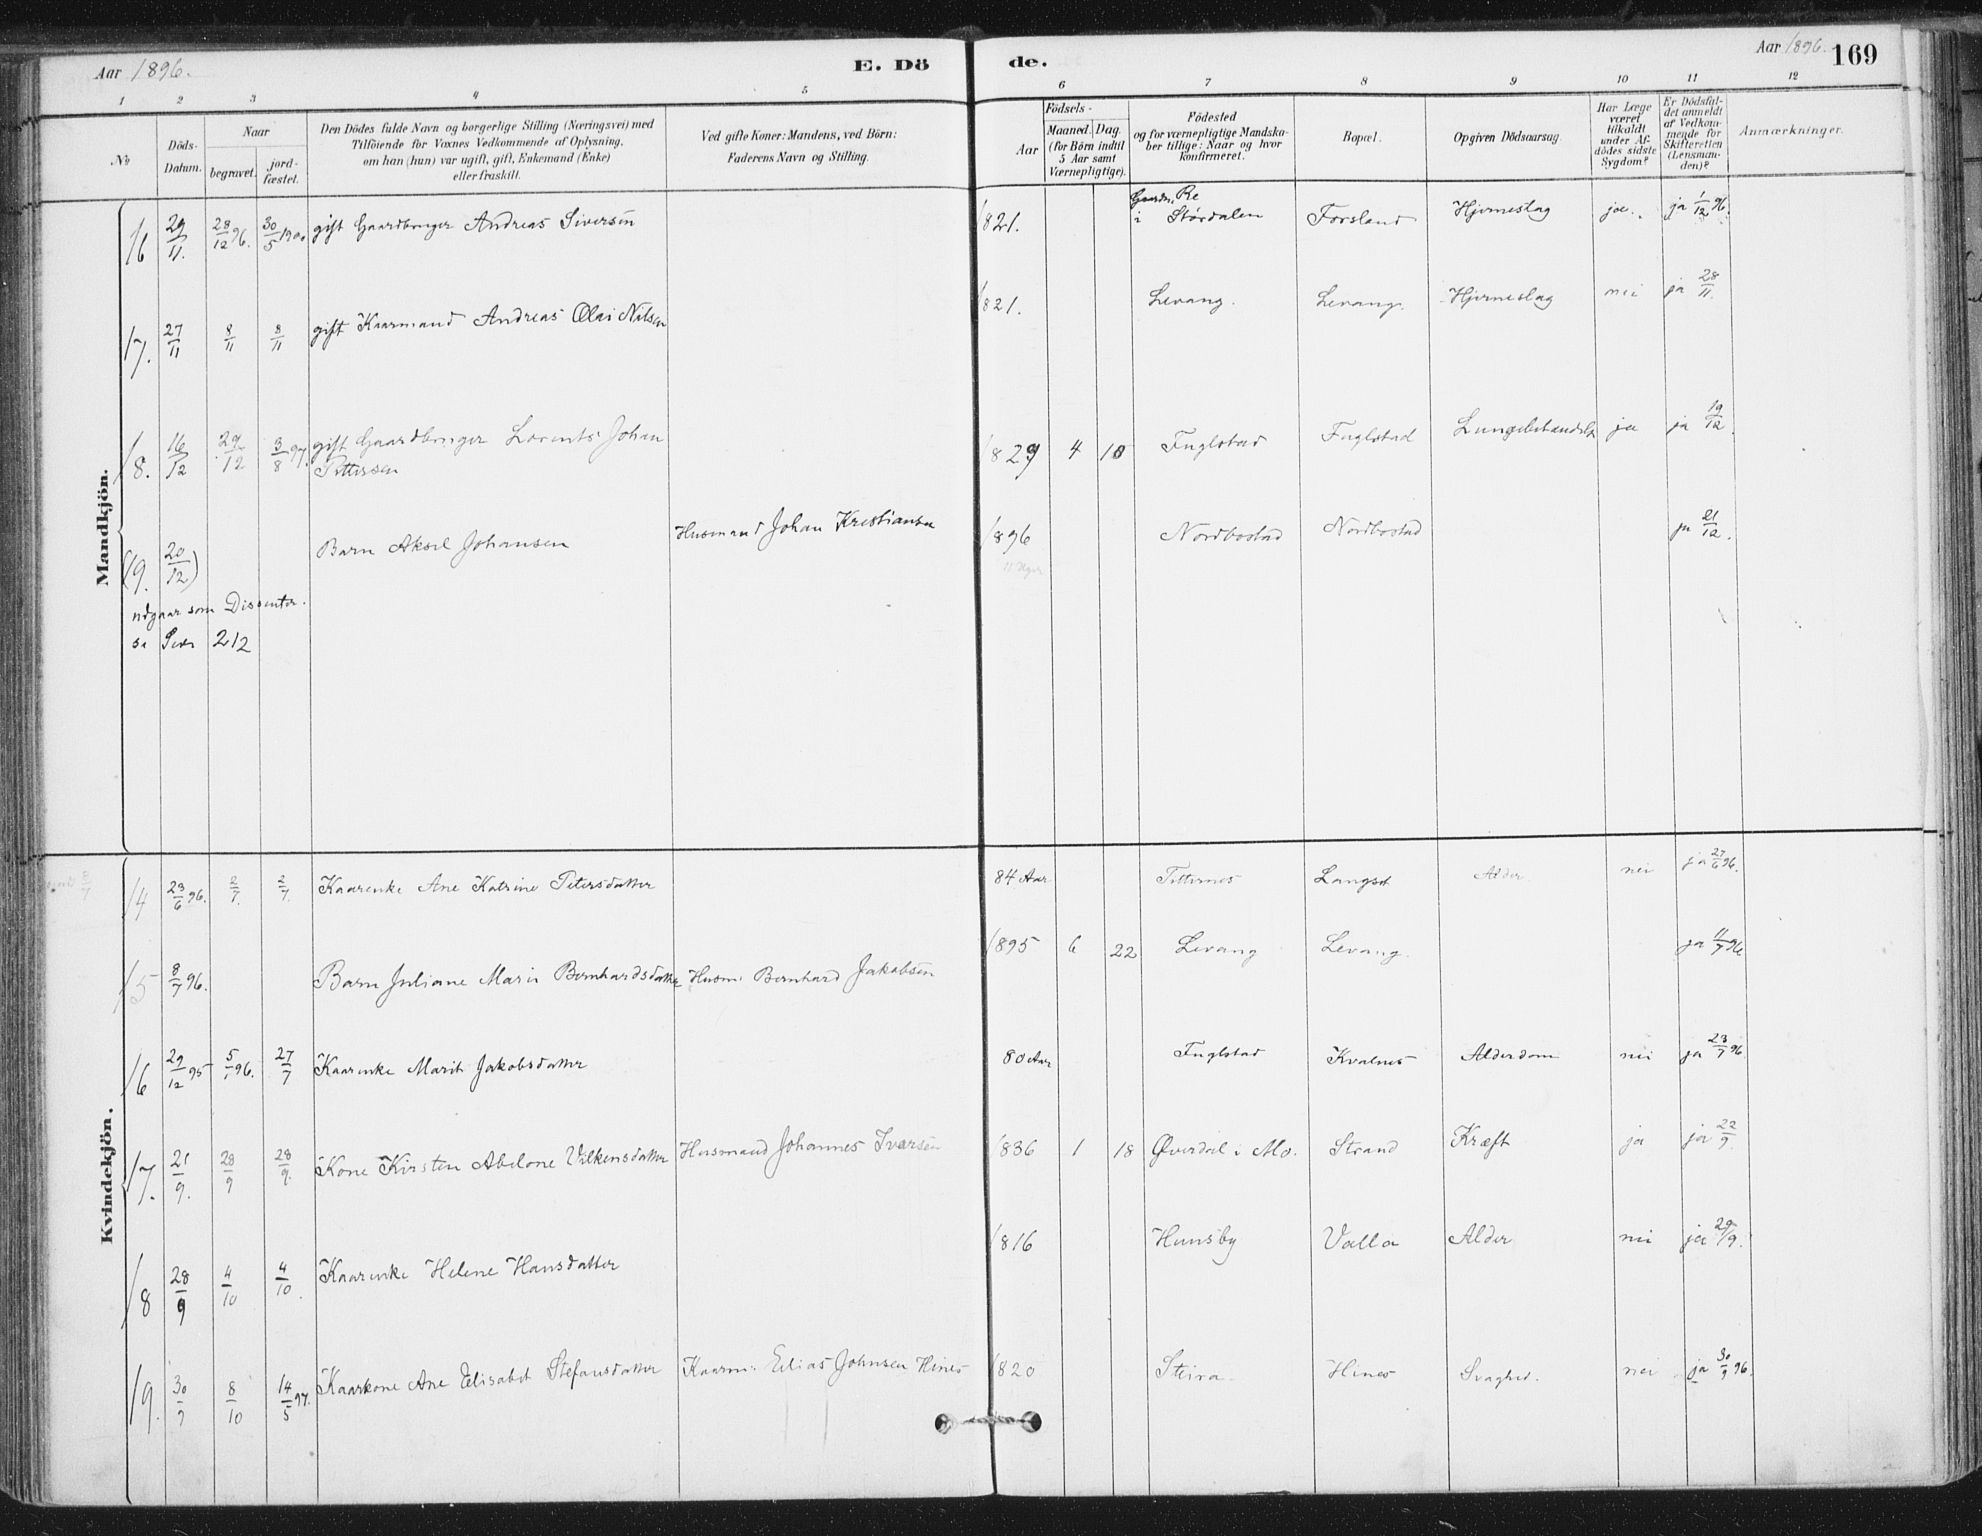 Aar 1896.
E. Dö
de.
Aar 1896.
169
1 2 3 4 5 6 7 8 9 10 11 12
No
Döds-
Datum.
Naar
begravet.
jord-
fæstet.
Den Dödes fulde Navn og borgerlige Stilling (Næringsvei) med
Tilföiende for Voxnes Vedkommende af Oplysning,
om han (hun) var ugift, gift, Enkemand (Enke)
eller fraskilt.
Ved gifte Koner: Mandens, ved Börn:
Faderens Navn og Stilling.
Födsels-
Aar
Maaned. Dag.
(for Börn indtil
5 Aar samt
Værnepligtige).
Födested
og for værnepligtige Mandska-
ber tillige: Naar og hvor
konfirmeret.
Bopæl.
Opgiven Dödsaarsag.
Har Læge
været
tilkaldt
under Af-
dödes sidste
Sygdom?
Er Dödsfal-
det anmeldt
af Vedkom-
mende for
Skifteretten
(Lensman-
den)?
Anmærkninger.
Mandkjön.
16 29/11. 28/12 96. 30/5 1900 gift Gaardbruger Andreas Siversen 1821. Gaarden Re i Stördalen Forsland Hjerneslag ja. ja 1/12 96.
17. 27/11 8/11 8/11 gift Kaarmand Andreas Olai Nilsen 1821. Levang. Levang. Hjerneslag nei ja 28/11.
18. 16/12 29/12 3/8 97. gift Gaardbruger Lorents Johan
Pettersen 1829 4 10 Fuglstad Fuglstad Lungebetændelse ja ja 19/12.
(19. 20/12) Barn Aksel Johansen Husmand Johan Kristiansen 1896 Nordbostad Nordbostad ja 21/12.
11 Uger
udgaar som Dissenter.
se Side 212
Kvindekjön.
14 23/6 96. 2/7. 2/7. Kaarenke Ane Katrine Petersdatter 84 Aar Titternes Langset Alder nei ja 27/6 96.
15 8/7 96. Barn Juliane Marie Bernhardsdatter Husm. Bernhard Jakobsen 1895 6 22 Levang Levang. ja 11/7 96
16 29/12 95 5/1 96. 27/7 Kaarenke Marit Jakobsdatter 80 Aar Fuglstad Kvalnes Alderdom nei ja 23/7 96
17. 21/9. 28/9 28/9. Kone Kirsten Abelone Vilkensdatter Husmand Johannes Iversen 1836 1 18 Øverdal i Mo. Strand Kræft ja ja 22/9.
18 28/9 4/10 4/10. Kaarenke Helene Hansdatter 1816 Hunsby Valla Alder nei ja 29/9.
19. 30/9 8/10 14/5 97. Kaarkone Ane Elisabet Stefansdatter Kaarm. Elias Johnsen Hines 1820 Steira Hines Svaghed. nei ja 30/9 96.